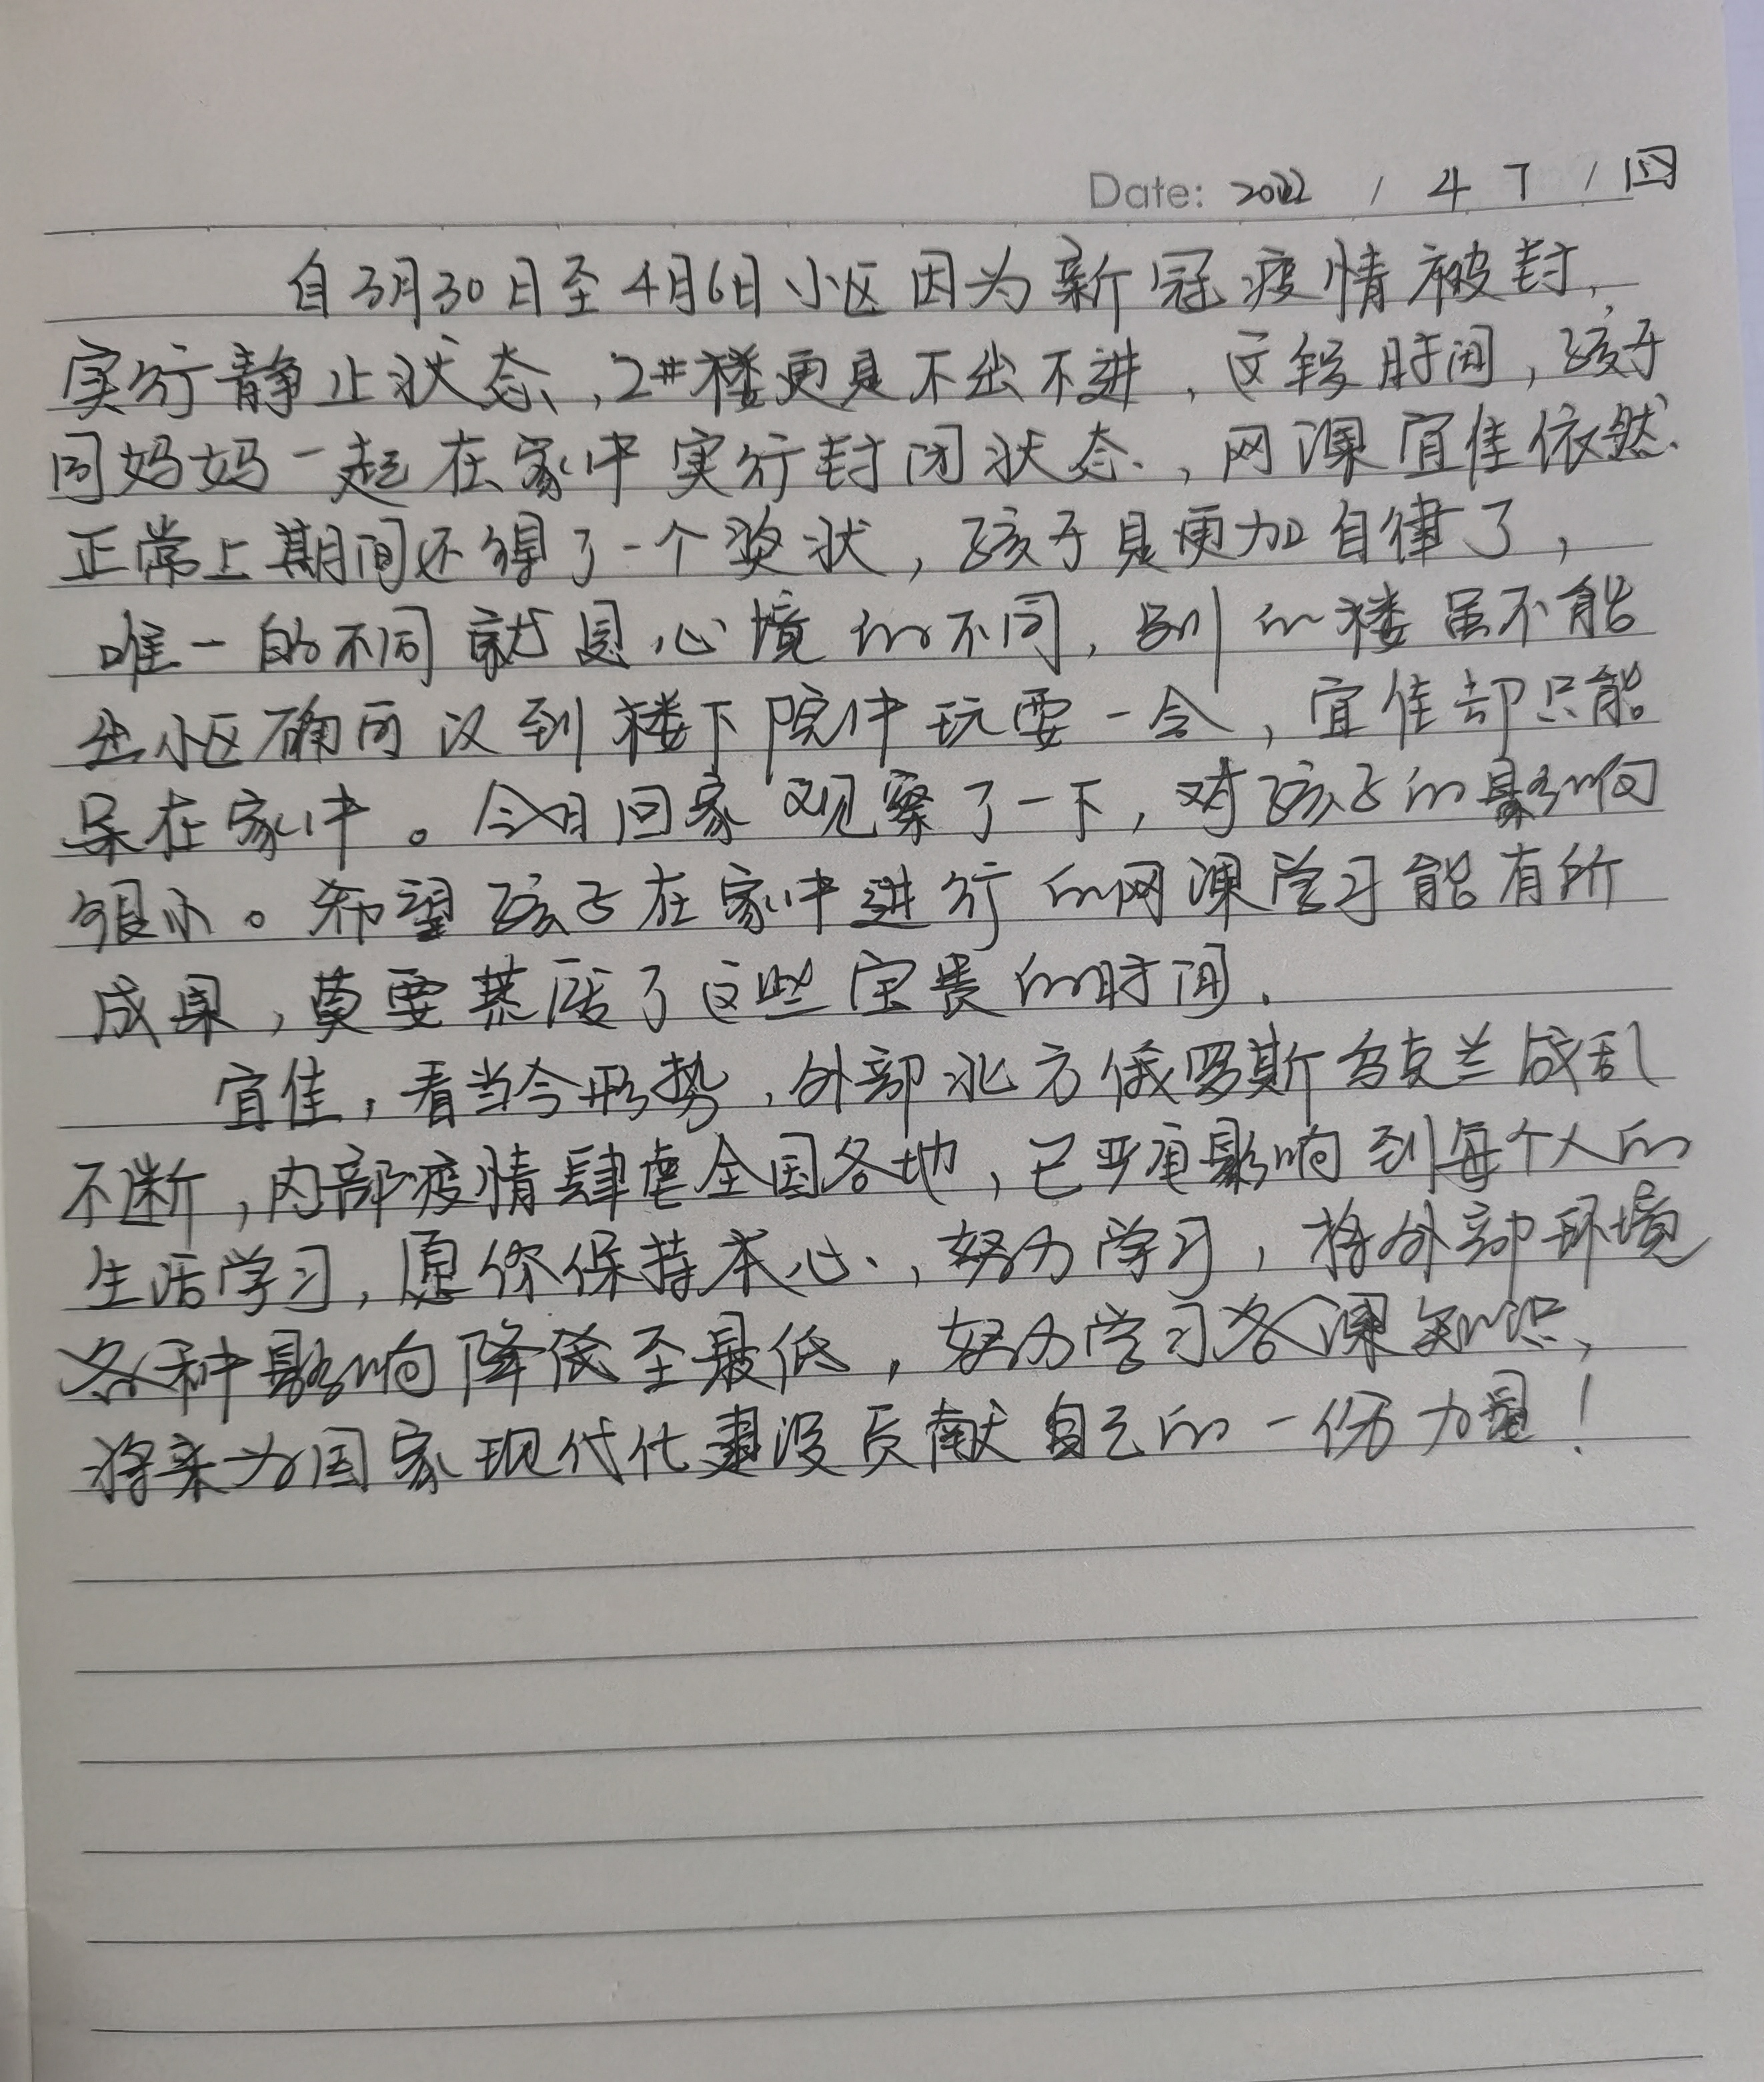 Date: 2022 / 4 7 / 四
自3月30日至4月6日小区因为新冠疫情被封,
实行静止状态,2#楼更是不出不进,这段时间,孩子
同妈妈一起在家中实行封闭状态,网课宜佳依然
正常上期间还得了一个奖状,孩子是更加自律了,
唯一的不同就是心境的不同,别的楼虽不能
出小区确可以到楼下院中玩耍一会,宜佳却只能
呆在家中。今日回家观察了一下,对孩子的影响
很小。希望孩子在家中进行的网课学习能有所
成果,莫要荒废了这些宝贵的时间.
宜佳,看当今形势,外部北方俄罗斯乌克兰战乱
不断,内部疫情肆虐全国各地,已严重影响到每个人的
生活学习,愿你保持本心,努力学习,将外部环境
各种影响降低至最低,努力学习各课知识,
将来为国家现代化建设贡献自己的一份力量!